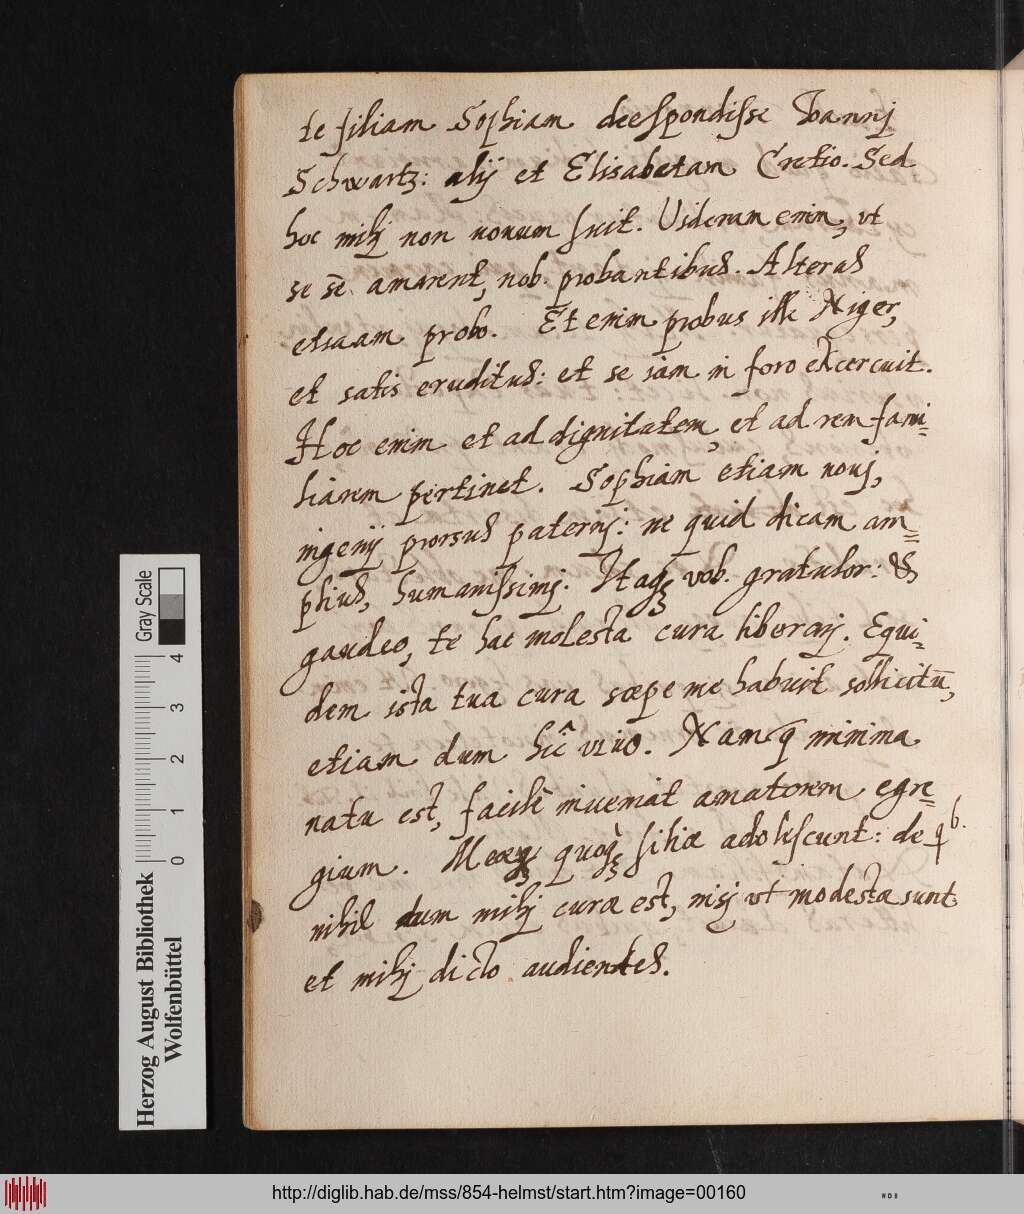 te filiam Sophiam deespondisse Ioannj
Schwartz: alij et Elisabetam Cretio. Sed
hoc mihj non nouum fuit. Uideram enim, vt
se sē amarent, nob. probantibus. Alteras
etiaam probo. Et enim probus ille Niger,
et satis eruditus: et se iam in foro exercuit.
Hoc enim et ad dignitatem, et ad rem fami=
liarem pertinet. Sophiam etiam nouj,
ingenij prorsus paternj: ne quid dicam am=
plius, humanissimj. Itaq3 vob. gratulor: &
gaudeo, te hac molesta cura liberarj. Equi=
dem ista tua cura sæpe me habuit sollicitū,
etiam dum hîc viuo. Nam q minima
natu est, facilè inueniat amatorem egre=
gium. Meæq3 quoq3 filiæ adolescunt: de qb.
nihil dum mihj curæ est, nisj vt modestæ sunt
et mihj dicto audientes.
Gray Scale
4
3
2
1
0
Herzog August Bibliothek
Wolfenbüttel
http://diglib.hab.de/mss/854-helmst/start.htm?image=00160
WDB